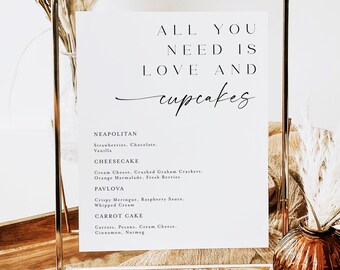 ALL YOU
NEED IS
LOVE AND
cupcakes
NEAPOLITAN
Strawberries, Chocolate,
Vanilla
CHEESECAKE
Cream Cheese, Crushed Graham Crackers,
Orange Marmalade, Fresh Berries
PAVLOVA
Crispy Meringue, Raspberry Sauce,
Whipped Cream
CARROT CAKE
Carrots, Pecans, Cream Cheese,
Cinnamon, Nutmeg